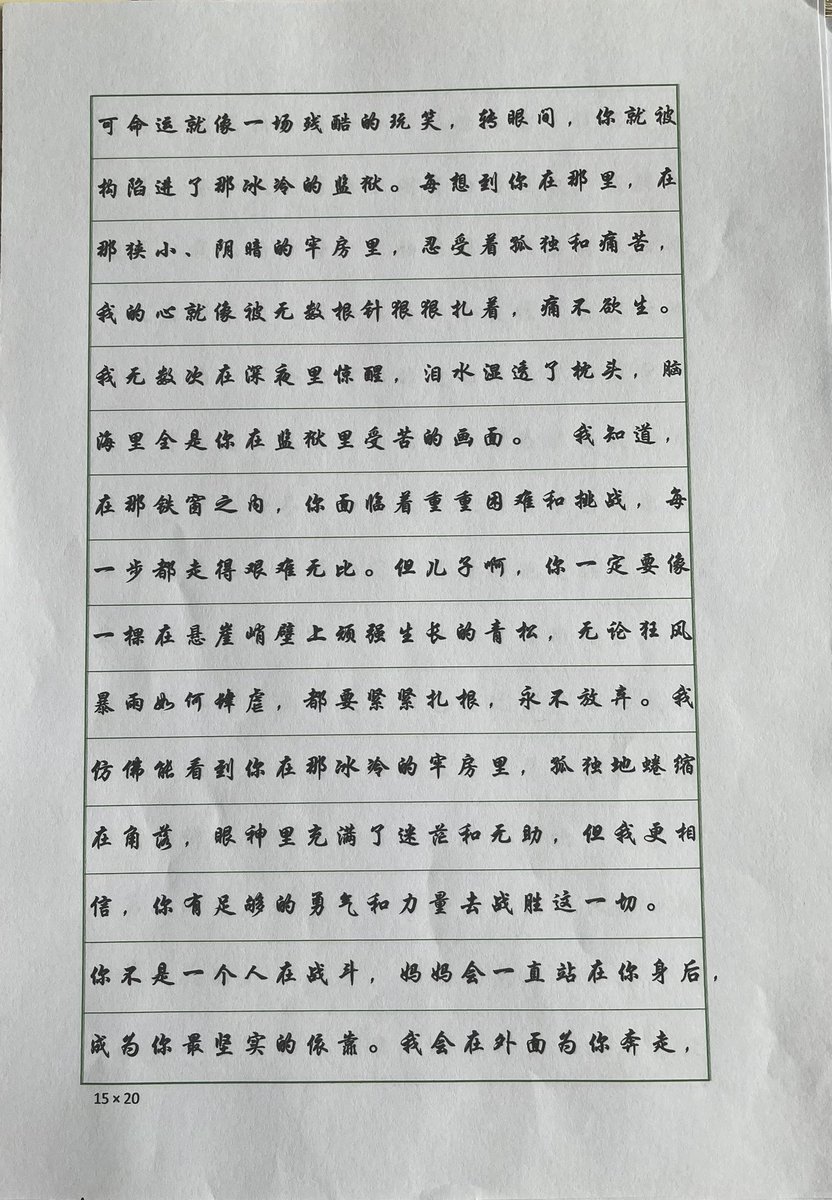 可命运就像一场残酷的玩笑，转眼间，你就被
构陷进了那冰冷的监狱。每想到你在那里，在
那狭小、阴暗的牢房里，忍受着孤独和痛苦，
我的心就像被无数根针狠狠扎着，痛不欲生。
我无数次在深夜里惊醒，泪水湿透了枕头，脑
海里全是你在监狱里受苦的画面。　我知道，
在那铁窗之内，你面临着重重困难和挑战，每
一步都走得艰难无比。但儿子啊，你一定要像
一棵在悬崖峭壁上顽强生长的青松，无论狂风
暴雨如何肆虐，都要紧紧扎根，永不放弃。我
仿佛能看到你在那冰冷的牢房里，孤独地蜷缩
在角落，眼神里充满了迷茫和无助，但我更相
信，你有足够的勇气和力量去战胜这一切。
你不是一个人在战斗，妈妈会一直站在你身后，
成为你最坚实的依靠。我会在外面为你奔走，
15×20